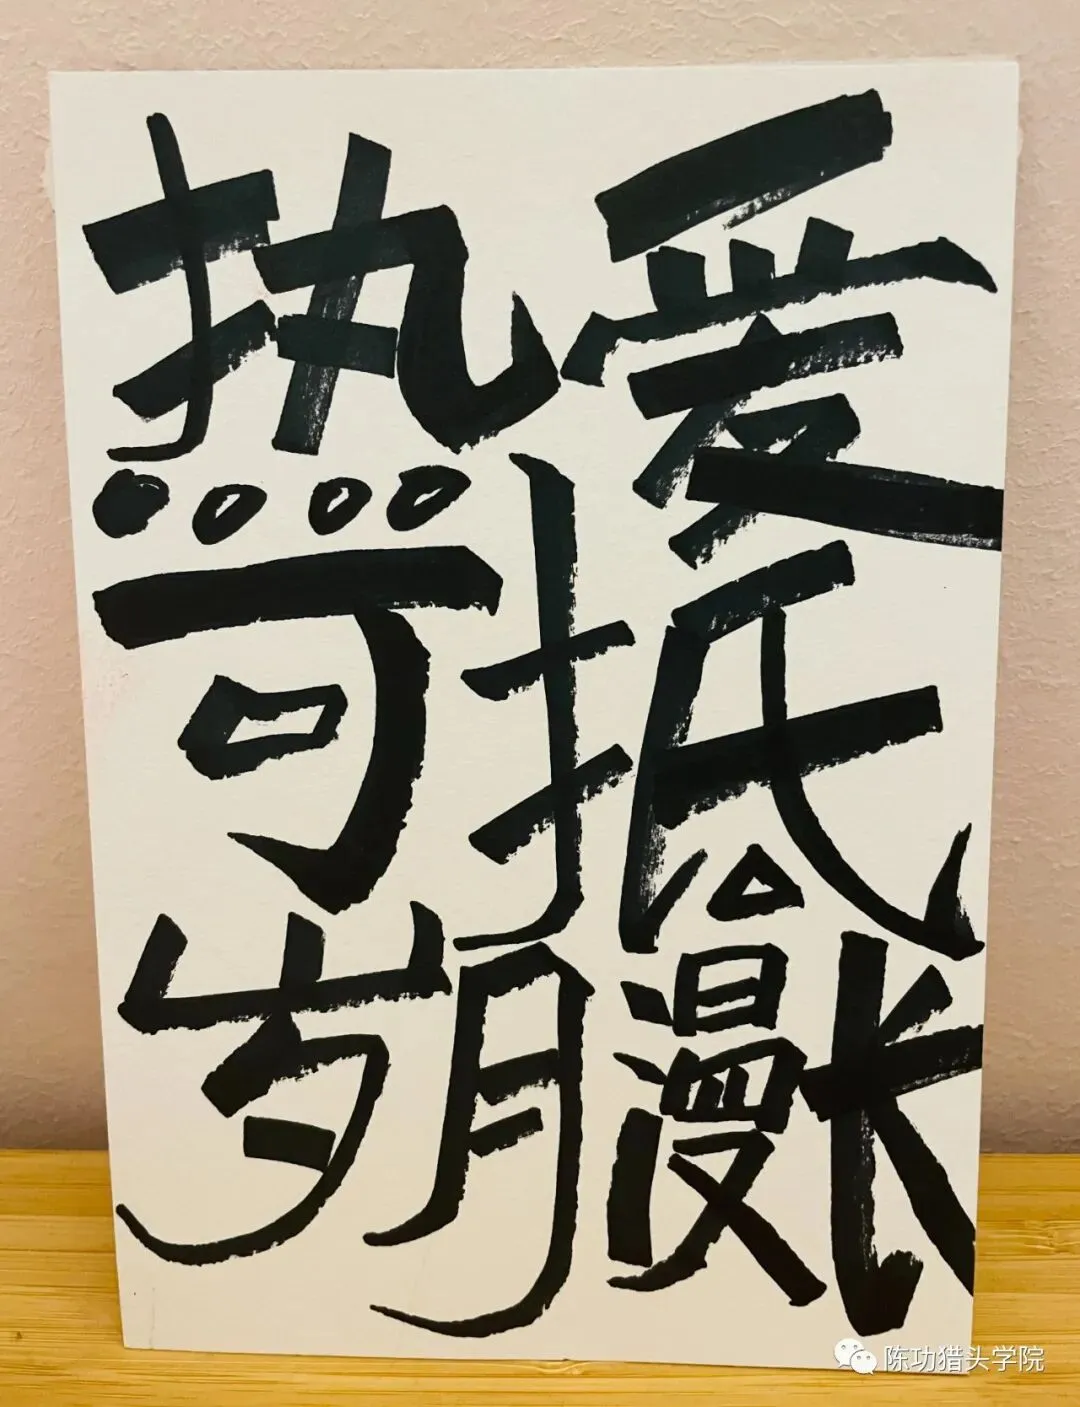 热爱
可抵
岁月漫长
陈功猎头学院